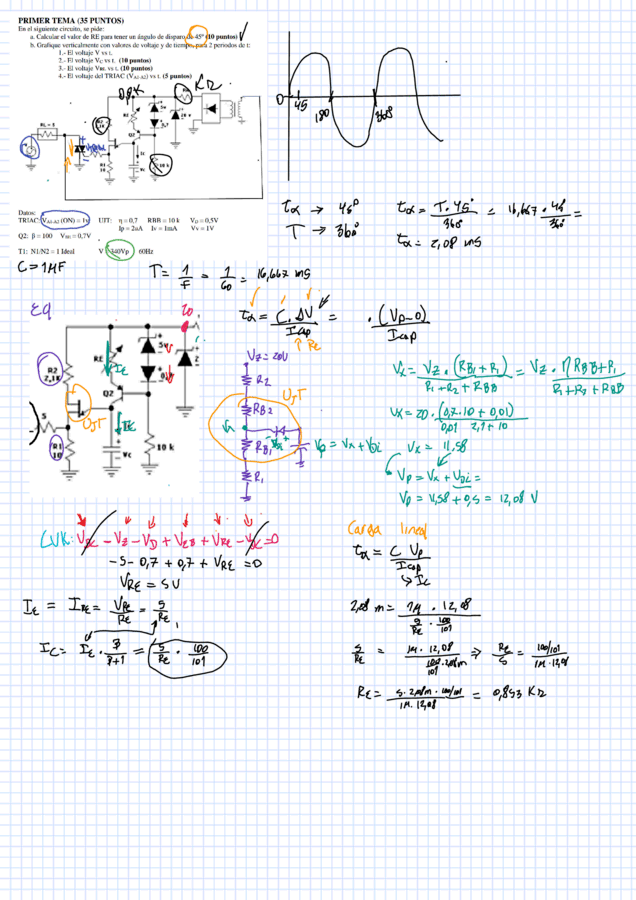 PRIMER TEMA (35 PUNTOS)
En el siguiente circuito, se pide:
a. Calcular el valor de RE para tener un ángulo de disparo de 45° (10 puntos)
b. Grafique verticalmente con valores de voltaje y de tiempo, para 2 periodos de t:
1.- El voltaje V vs t.
2.- El voltaje VC vs t. (10 puntos)
3.- El voltaje VRE vs t. (10 puntos)
4.- El voltaje del TRIAC (VA1-A2) vs t. (5 puntos)
KΩ
RE
Q2
Vc
10 k
0
45
180
360°
Datos:
TRIAC: VA1-A2 (ON) = 1v
UJT: η=0,7 RBB = 10 k VD=0,5V
Ip = 2uA Iv = 1mA Vv = 1V
Q2: β = 100 VBE = 0,7V
T1: N1/N2 = 1 Ideal
340Vp
60Hz
tα → 45°
T → 360°
tα = T · 45° / 360° = 16,667 · 45 / 360° =
tα = 2,08 ms
C = 1µF
T = 1/F = 1/60 = 16,667 ms
EQ
tα = C · ΔV / Icap = · (Vp-0) / Icap
Re
20
R2
2,1K
RE
IE
5v
Q2
UJT
R1
10
Vc
10 k
VZ = 20V
R2
RB2
UJT
Vx
RB1
Vp = Vx + VDi
R1
Vx = VZ · (RB1 + R1) / R1 + R2 + RBB = VZ · ηRBB + R1 / R1 + R2 + RBB
Vx = 20 · (0,7 · 10 + 0,01) / 0,01 2,1 + 10
Vx = 11,58
Vp = Vx + VDi =
Vp = 11,58 + 0,5 = 12,08 V
LVK: VDC - VZ - VD + VEB + VRE - VDC = 0
-5 - 0,7 + 0,7 + VRE = 0
VRE = 5V
IE = IRE = VRE / RE = 5 / RE
IC = IE · β / β+1 = 5 / Re · 100 / 101
Carga lineal
tα = C Vp / Icap
→ Ic
2,08 m = 1µ · 12,08 / 5/Re · 100/101
5 / RE = 1µ · 12,08 / 100/101 · 2,08m ⇒ Re / 5 = 100/101 / 1µ · 12,08
RE = 5 · 2,08m · 100/101 / 1µ · 12,08 = 0,853 KΩ